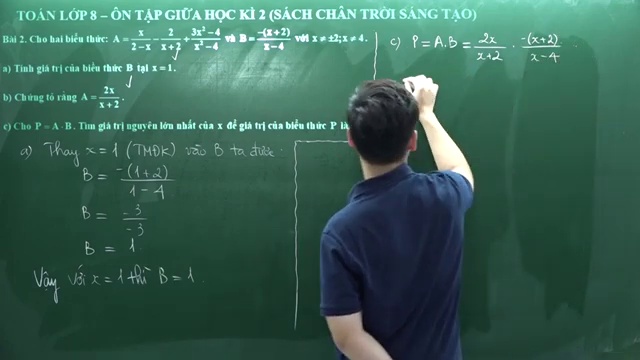 TOÁN LỚP 8 – ÔN TẬP GIỮA HỌC KÌ 2 (SÁCH CHÂN TRỜI SÁNG TẠO)
Bài 2. Cho hai biểu thức: A = x/(2−x) − 2/(x+2) + (3x²−4)/(x²−4) và B = −(x+2)/(x−4) với x ≠ ±2; x ≠ 4.
a) Tính giá trị của biểu thức B tại x = 1.
b) Chứng tỏ rằng A = 2x/(x+2).
c) Cho P = A · B. Tìm giá trị nguyên lớn nhất của x để giá trị của biểu thức P là
a) Thay x = 1 (TMĐK) vào B ta được:
B = −(1+2)/(1−4)
B = −3/−3
B = 1.
Vậy với x = 1 thì B = 1.
c) P = A.B = 2x/(x+2) . −(x+2)/(x−4)